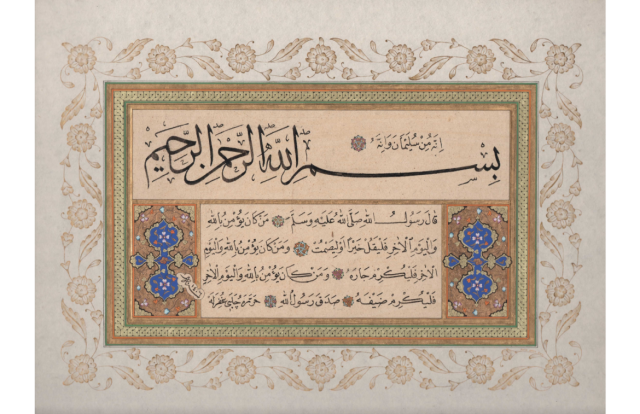 إنه من سليمان وإنه
بسم الله الرحمن الرحيم
قال رسول الله صلى الله عليه وسلم من كان يؤمن بالله
واليوم الآخر فليقل خيرا أو ليصمت ومن كان يؤمن بالله واليوم
الآخر فليكرم جاره ومن كان يؤمن بالله واليوم الآخر
فليكرم ضيفه صدق رسول الله